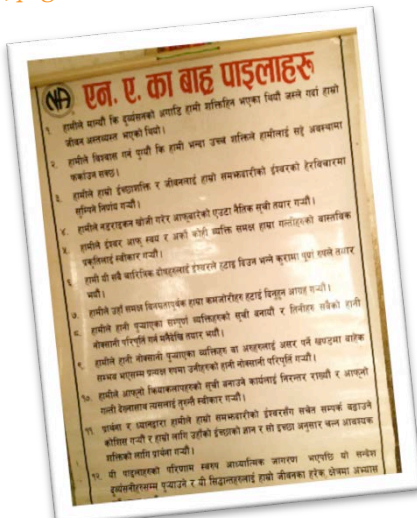 NA
एन. ए. का बाह्र पाइलाहरु
१. हामीले मान्यौं कि दुर्व्यसनको अगाडि हामी शक्तिहिन भएका थियौं जस्ले गर्दा हाम्रो
जीवन अस्तव्यस्त भएको थियो।
२. हामीले विश्वास गर्न पुग्यौं कि हामी भन्दा उच्च शक्तिले हामीलाई सद्दे अवस्थामा
फर्काउन सक्छ।
३. हामीले हाम्रो ईच्छाशक्ति र जीवनलाई हाम्रो समझदारीको ईश्वरको हेरविचारमा
सुम्पिने निर्णय गर्‍यौं।
४. हामीले नडराइकन खोजी गरेर आफूबारेको एउटा नैतिक सूची तयार गर्‍यौं।
५. हामीले ईश्वर आफू स्वयं र अर्को कोही व्यक्ति समक्ष हाम्रा गल्तीहरुको वास्तविक
प्रकृतिलाई स्वीकार गर्‍यौं।
६. हामी यी सबै चारित्रिक दोषहरुलाई ईश्वरले हटाइ दिउन भन्ने कुरामा पुरा रुपले तयार
भयौं।
७. हामीले उहाँ समक्ष विनम्रतापूर्वक हाम्रा कमजोरीहरु हटाई दिनुहुन आग्रह गर्‍यौं।
८. हामीले हानी पुर्‍याएका सम्पूर्ण व्यक्तिहरुको सुची बनायौं र तिनीहरु सबैको हानी
नोक्सानी परिपूर्ति गर्न मनैदेखि तयार भयौं।
९. हामीले हानी नोक्सानी पुर्‍याएका व्यक्तिहरु वा अरुहरुलाई असर पर्ने खण्डमा बाहेक
सम्भव भएसम्म प्रत्यक्ष रुपमा उनीहरुको हानी नोक्सानी परिपूर्ति गर्‍यौं।
१०. हामीले आफ्नो क्रियाकलापहरुको सूची बनाउने कार्यलाई निरन्तर राख्यौं र आफ्नो
गल्ती देख्नासाथ त्यसलाई तुरुन्तै स्वीकार गर्‍यौं।
११. प्रार्थना र ध्यानद्वारा हामीले हाम्रो समझदारीको ईश्वरसँग सचेत सम्पर्क बढाउने
कोशिस गर्‍यौं र हाम्रो लागि उहाँको ईच्छाको ज्ञान र सो इच्छा अनुसार चल्न आवश्यक
शक्तिको लागि प्रार्थना गर्‍यौं।
१२. यी पाइलाहरुको परिणाम स्वरुप आध्यात्मिक जागरण भएपछि यो सन्देश
दुर्व्यसनीहरुसम्म पुर्‍याउने र यी सिद्धान्तहरुलाई हाम्रो जीवनका हरेक क्षेत्रमा अभ्यास